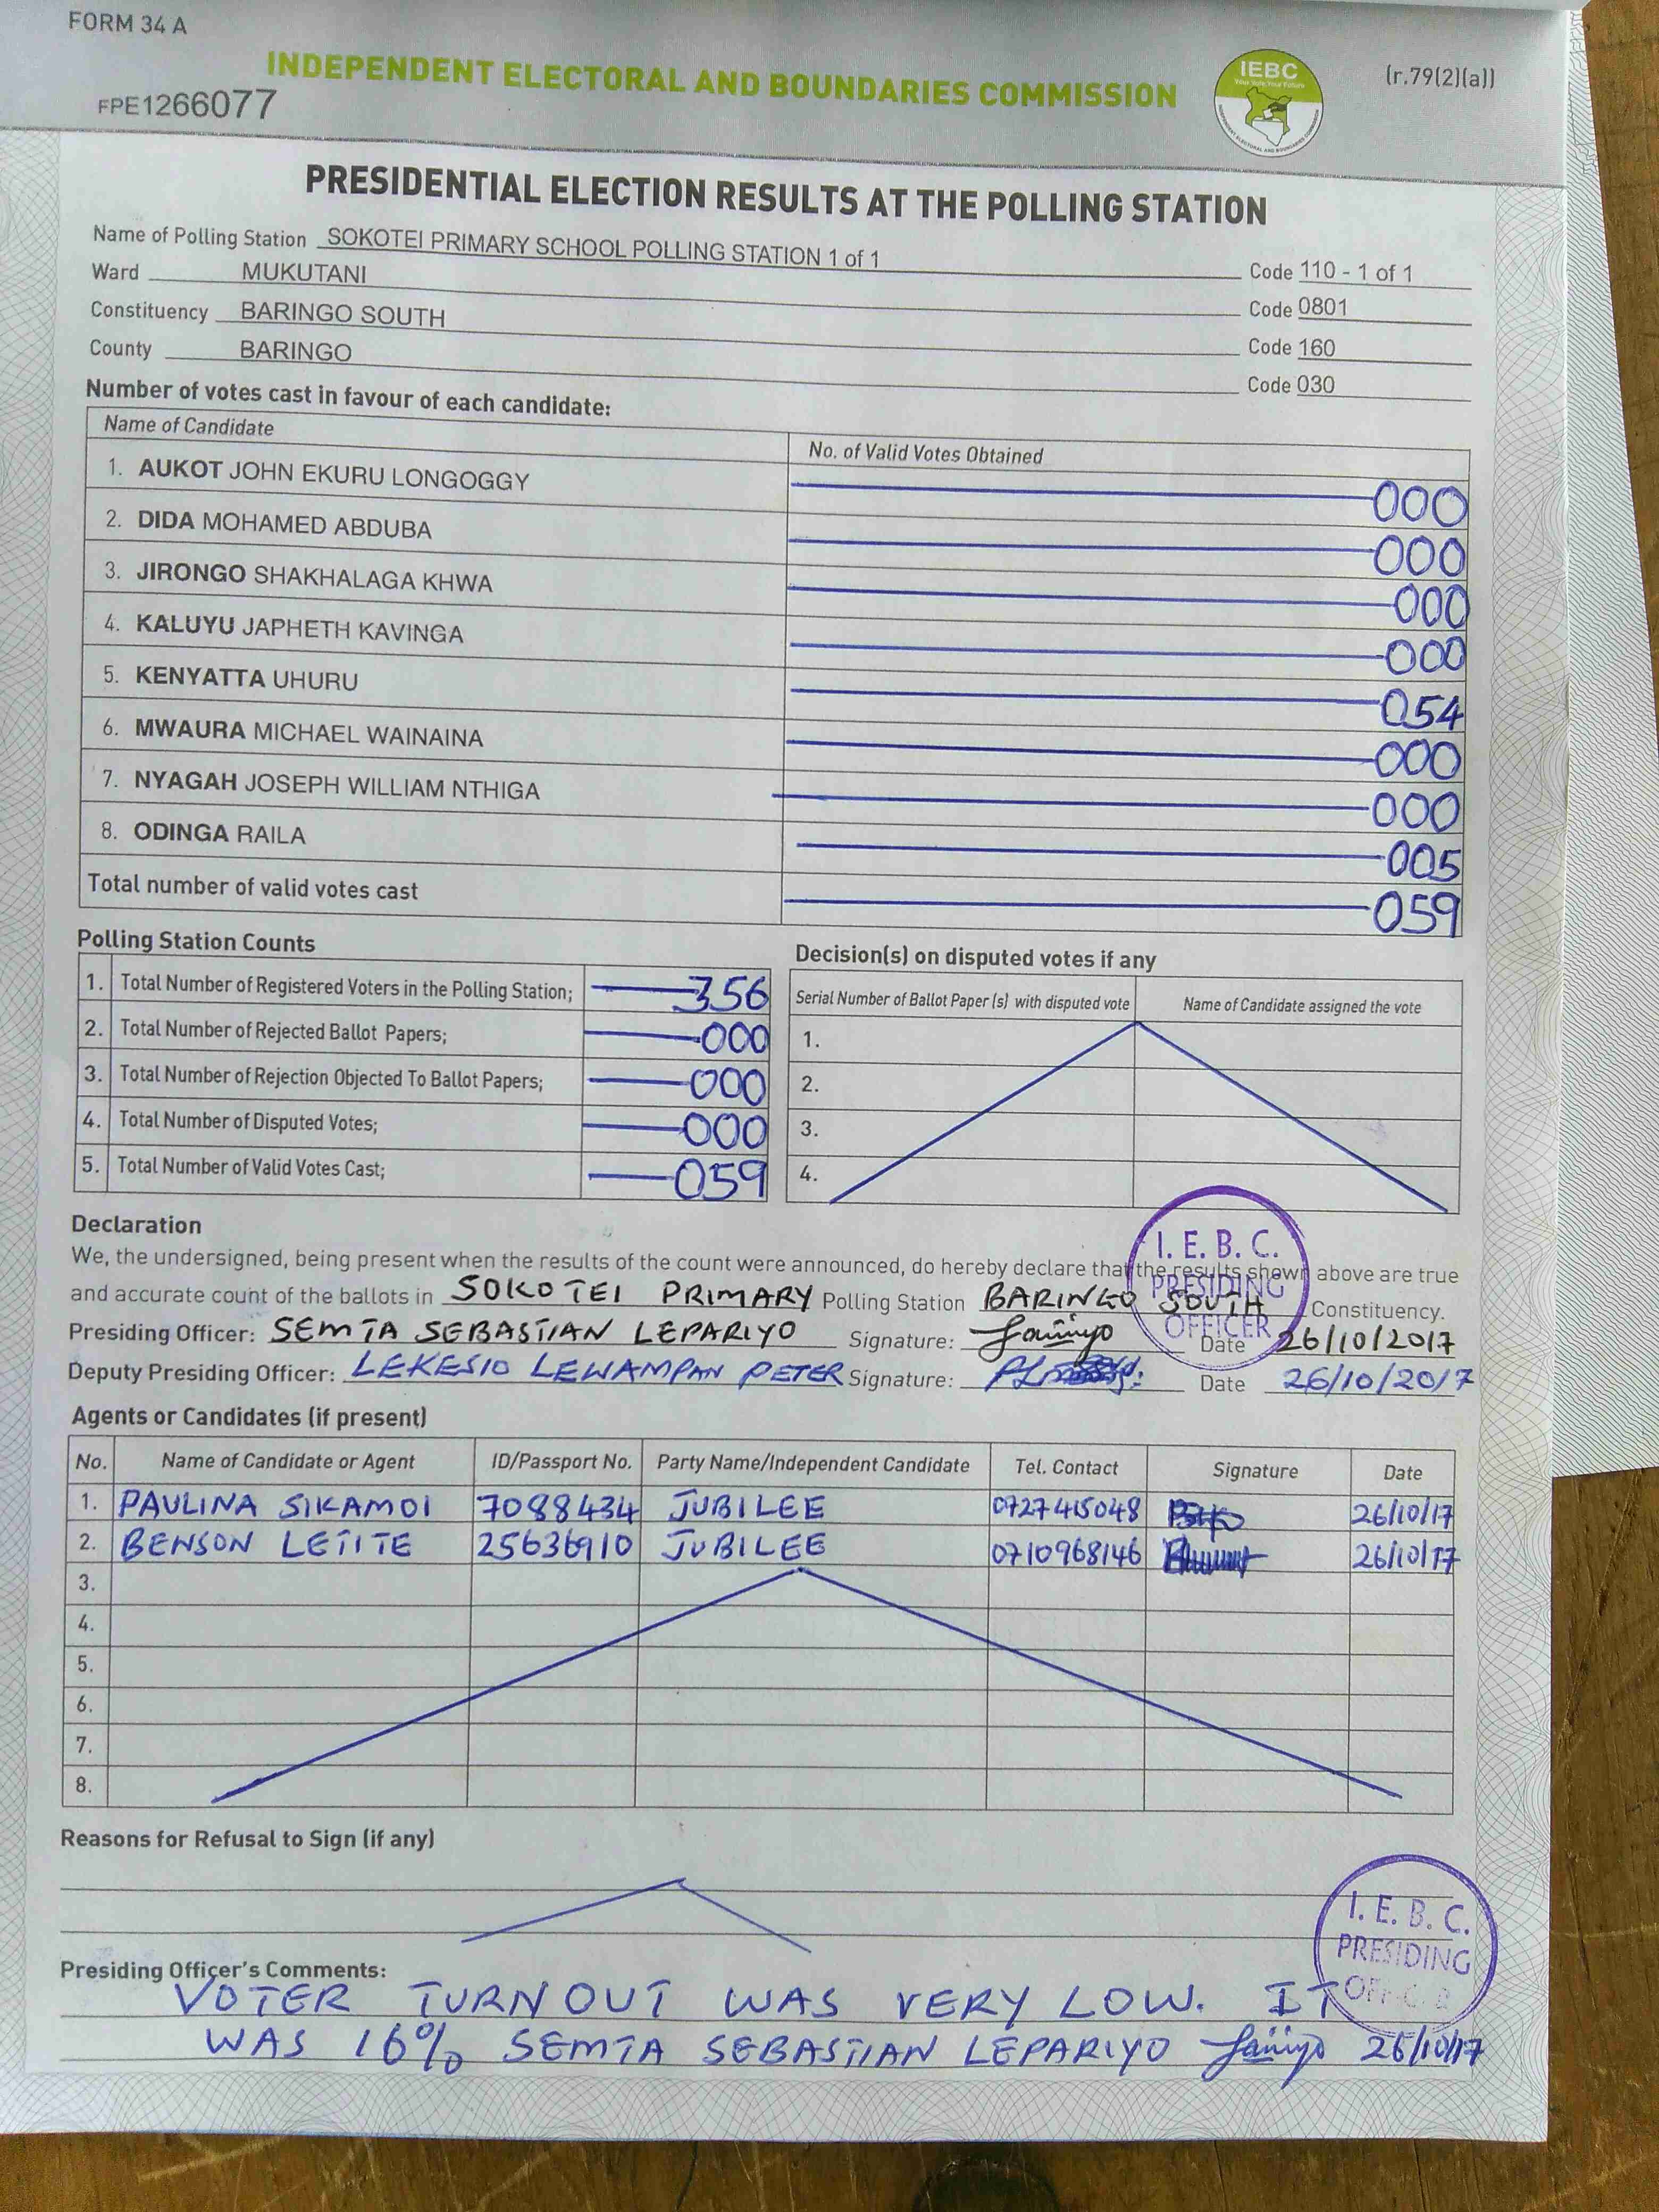 FORM 34 A
INDEPENDENT ELECTORAL AND BOUNDARIES COMMISSION
IEBC
Your Vote, Your Future
(r.79(2)(a))
FPE1266077
PRESIDENTIAL ELECTION RESULTS AT THE POLLING STATION
Name of Polling Station SOKOTEI PRIMARY SCHOOL POLLING STATION 1 of 1 Code 110 - 1 of 1
Ward MUKUTANI Code 0801
Constituency BARINGO SOUTH Code 160
County BARINGO Code 030
Number of votes cast in favour of each candidate:
Name of Candidate No. of Valid Votes Obtained
1. AUKOT JOHN EKURU LONGOGGY 000
2. DIDA MOHAMED ABDUBA 000
3. JIRONGO SHAKHALAGA KHWA 000
4. KALUYU JAPHETH KAVINGA 000
5. KENYATTA UHURU 054
6. MWAURA MICHAEL WAINAINA 000
7. NYAGAH JOSEPH WILLIAM NTHIGA 000
8. ODINGA RAILA 005
Total number of valid votes cast 059
Polling Station Counts
1. Total Number of Registered Voters in the Polling Station; 356
2. Total Number of Rejected Ballot Papers; 000
3. Total Number of Rejection Objected To Ballot Papers; 000
4. Total Number of Disputed Votes; 000
5. Total Number of Valid Votes Cast; 059
Decision(s) on disputed votes if any
Serial Number of Ballot Paper (s) with disputed vote Name of Candidate assigned the vote
1.
2.
3.
4.
Declaration
We, the undersigned, being present when the results of the count were announced, do hereby declare that the results shown above are true
and accurate count of the ballots in SOKOTEI PRIMARY Polling Station BARINGO SOUTH Constituency.
I. E. B. C.
PRESIDING
OFFICER
Presiding Officer: SEMTA SEBASTIAN LEPARIYO Signature: Date 26/10/2017
Deputy Presiding Officer: LEKESIO LEWAMPAN PETER Signature: Date 26/10/2017
Agents or Candidates (if present)
No. Name of Candidate or Agent ID/Passport No. Party Name/Independent Candidate Tel. Contact Signature Date
1. PAULINA SIKAMOI 7088434 JUBILEE 0727415048 26/10/17
2. BENSON LETITE 25636910 JUBILEE 0710968146 26/10/17
3.
4.
5.
6.
7.
8.
Reasons for Refusal to Sign (if any)
I. E. B. C.
PRESIDING
OFFICER
Presiding Officer's Comments:
VOTER TURNOUT WAS VERY LOW. IT
WAS 16% SEMTA SEBASTIAN LEPARIYO 26/10/17